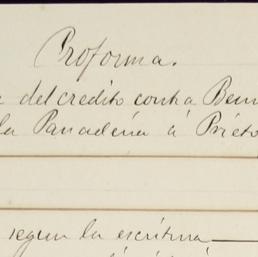 Proforma.
del credito contra Ben
la Panaderia á Prieto
segun la escritura